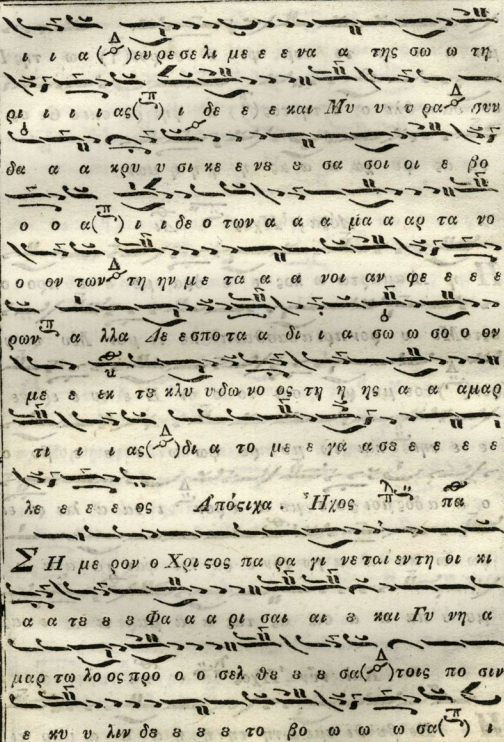 ι ι α ευ ρε σε λι με ε ε να α της σω ω τη
ρι ι ι ι ας ι δε ε ε ε και Μυ υ υ ρα συν
δα α α κρυ υ σι κε ε νε ε ε σα σοι ρι ε βο
ο ο α ι ι δε ο των α α α μα α αρ τα νο
ο ον των τη ην με τα α α νοι αν φε ε ε ε
ρων α λλα Δε εσποτα α δι ι α σω ω σο ο ον
με ε εκ τȣ κλυ υδωνο ος τη η ης α α αμαρ
τι ι ι ι ας δι α το με ε γα α α σε ε ε ε ε
λε ε ε ε ε ος Απόςιχα . Ἦχος πα
ΣΗ με ρον ο Χρι ςος πα ρα γι νεται εν τη οι κι
α α τȣ ȣ ȣ Φα α α ρι σαι αι ȣ και Γυ νη α
μαρ τω λο ος προ ο ο σελ θȣ ȣ ȣ ȣ σα τοις πο σιν
ε κυ υ λιν δε ε ε ε το βο ω ω ω ω σα ι